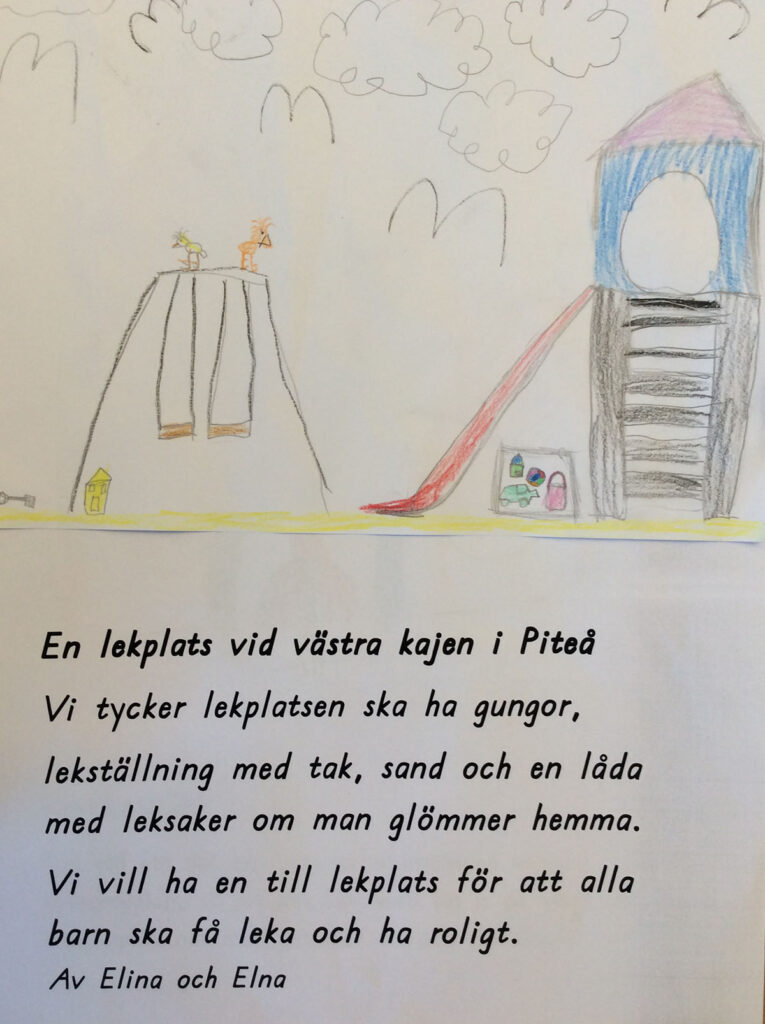 En lekplats vid västra kajen i Piteå
Vi tycker lekplatsen ska ha gungor,
lekställning med tak, sand och en låda
med leksaker om man glömmer hemma.
Vi vill ha en till lekplats för att alla
barn ska få leka och ha roligt.
Av Elina och Elna